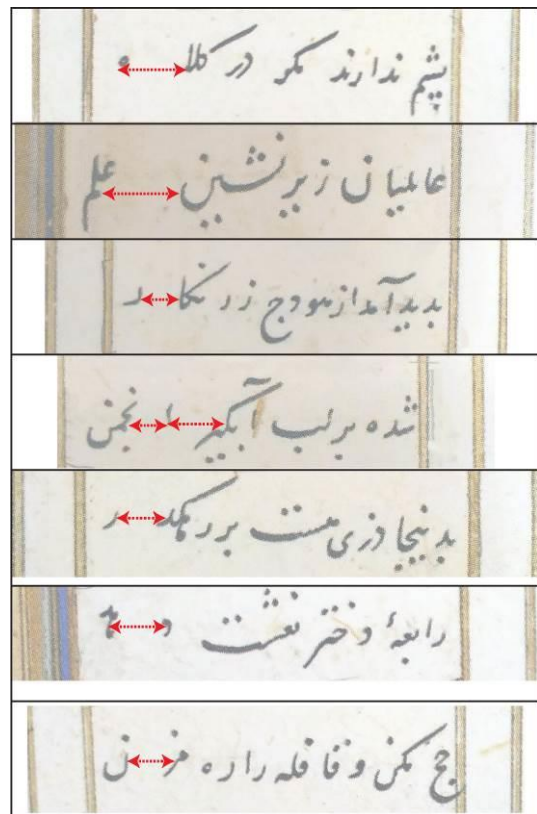 پشم ندارند مگر در کلا ه
عالمیان زیر نشین علم
بدید آمد از هودج زر نگا ر
شده بر لب آبگیر ا نجمن
بدینجا دزی هست بر رهگذ ر
رابعهٔ دختر نعشت د هد
حج مکن و قافله را ره مز ن